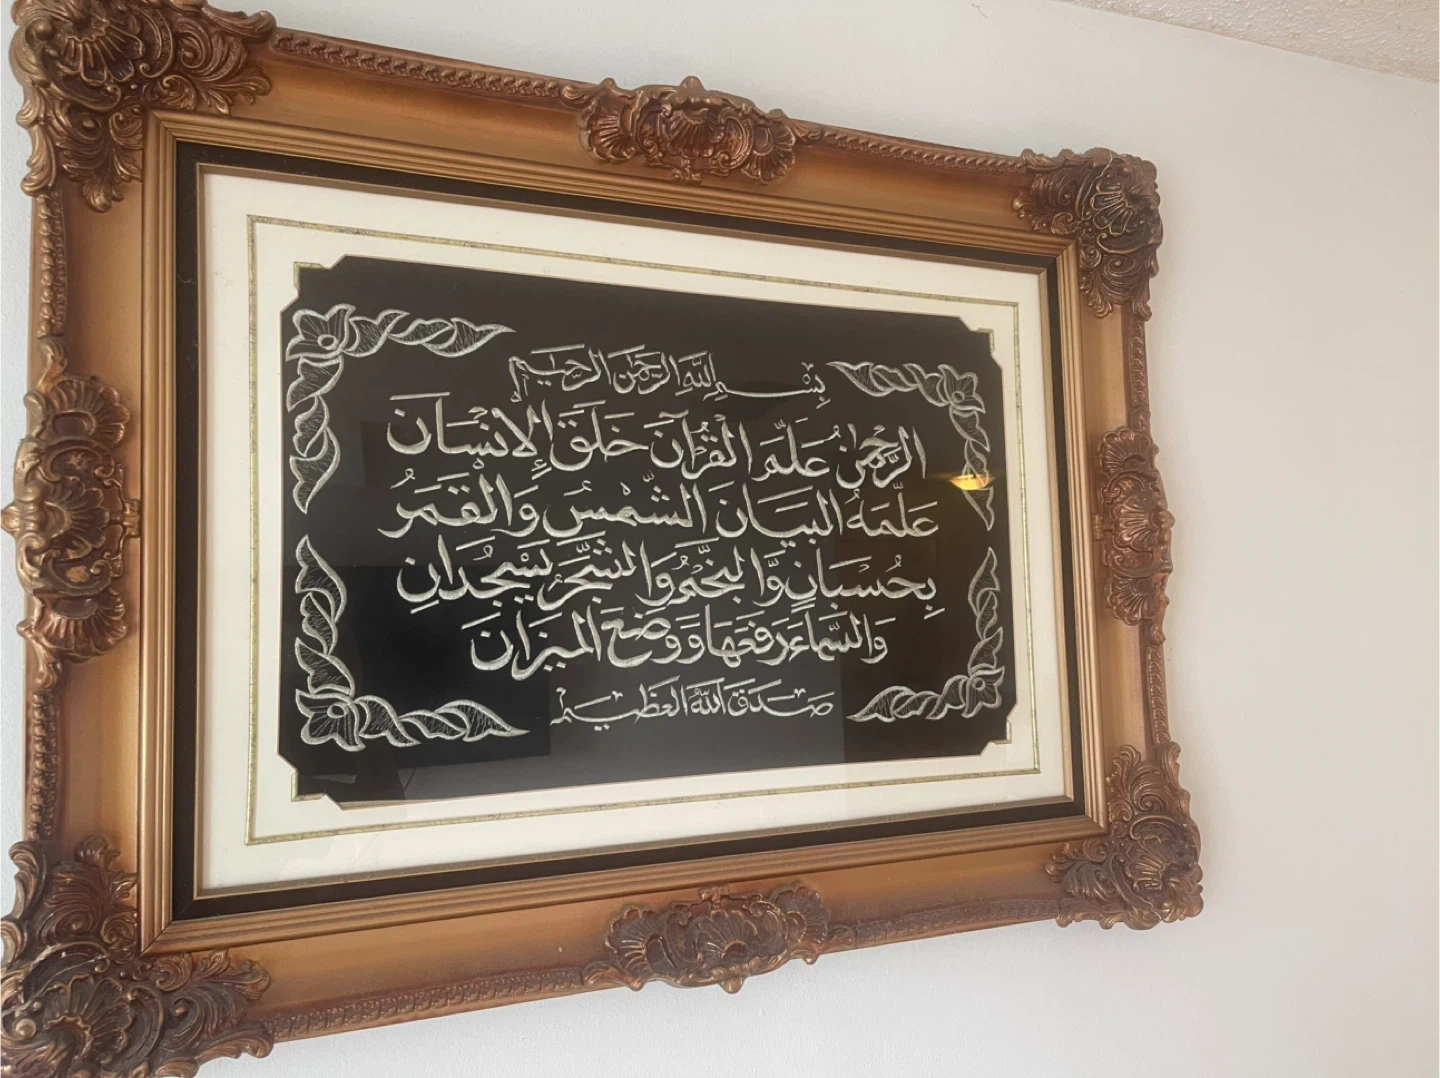 بِسْمِ اللَّهِ الرَّحْمَٰنِ الرَّحِيمِ
الرَّحْمَٰنُ عَلَّمَ الْقُرْآنَ خَلَقَ الْإِنْسَانَ
عَلَّمَهُ الْبَيَانَ الشَّمْسُ وَالْقَمَرُ
بِحُسْبَانٍ وَالنَّجْمُ وَالشَّجَرُ يَسْجُدَانِ
وَالسَّمَاءَ رَفَعَهَا وَوَضَعَ الْمِيزَانَ
صَدَقَ اللَّهُ الْعَظِيمُ